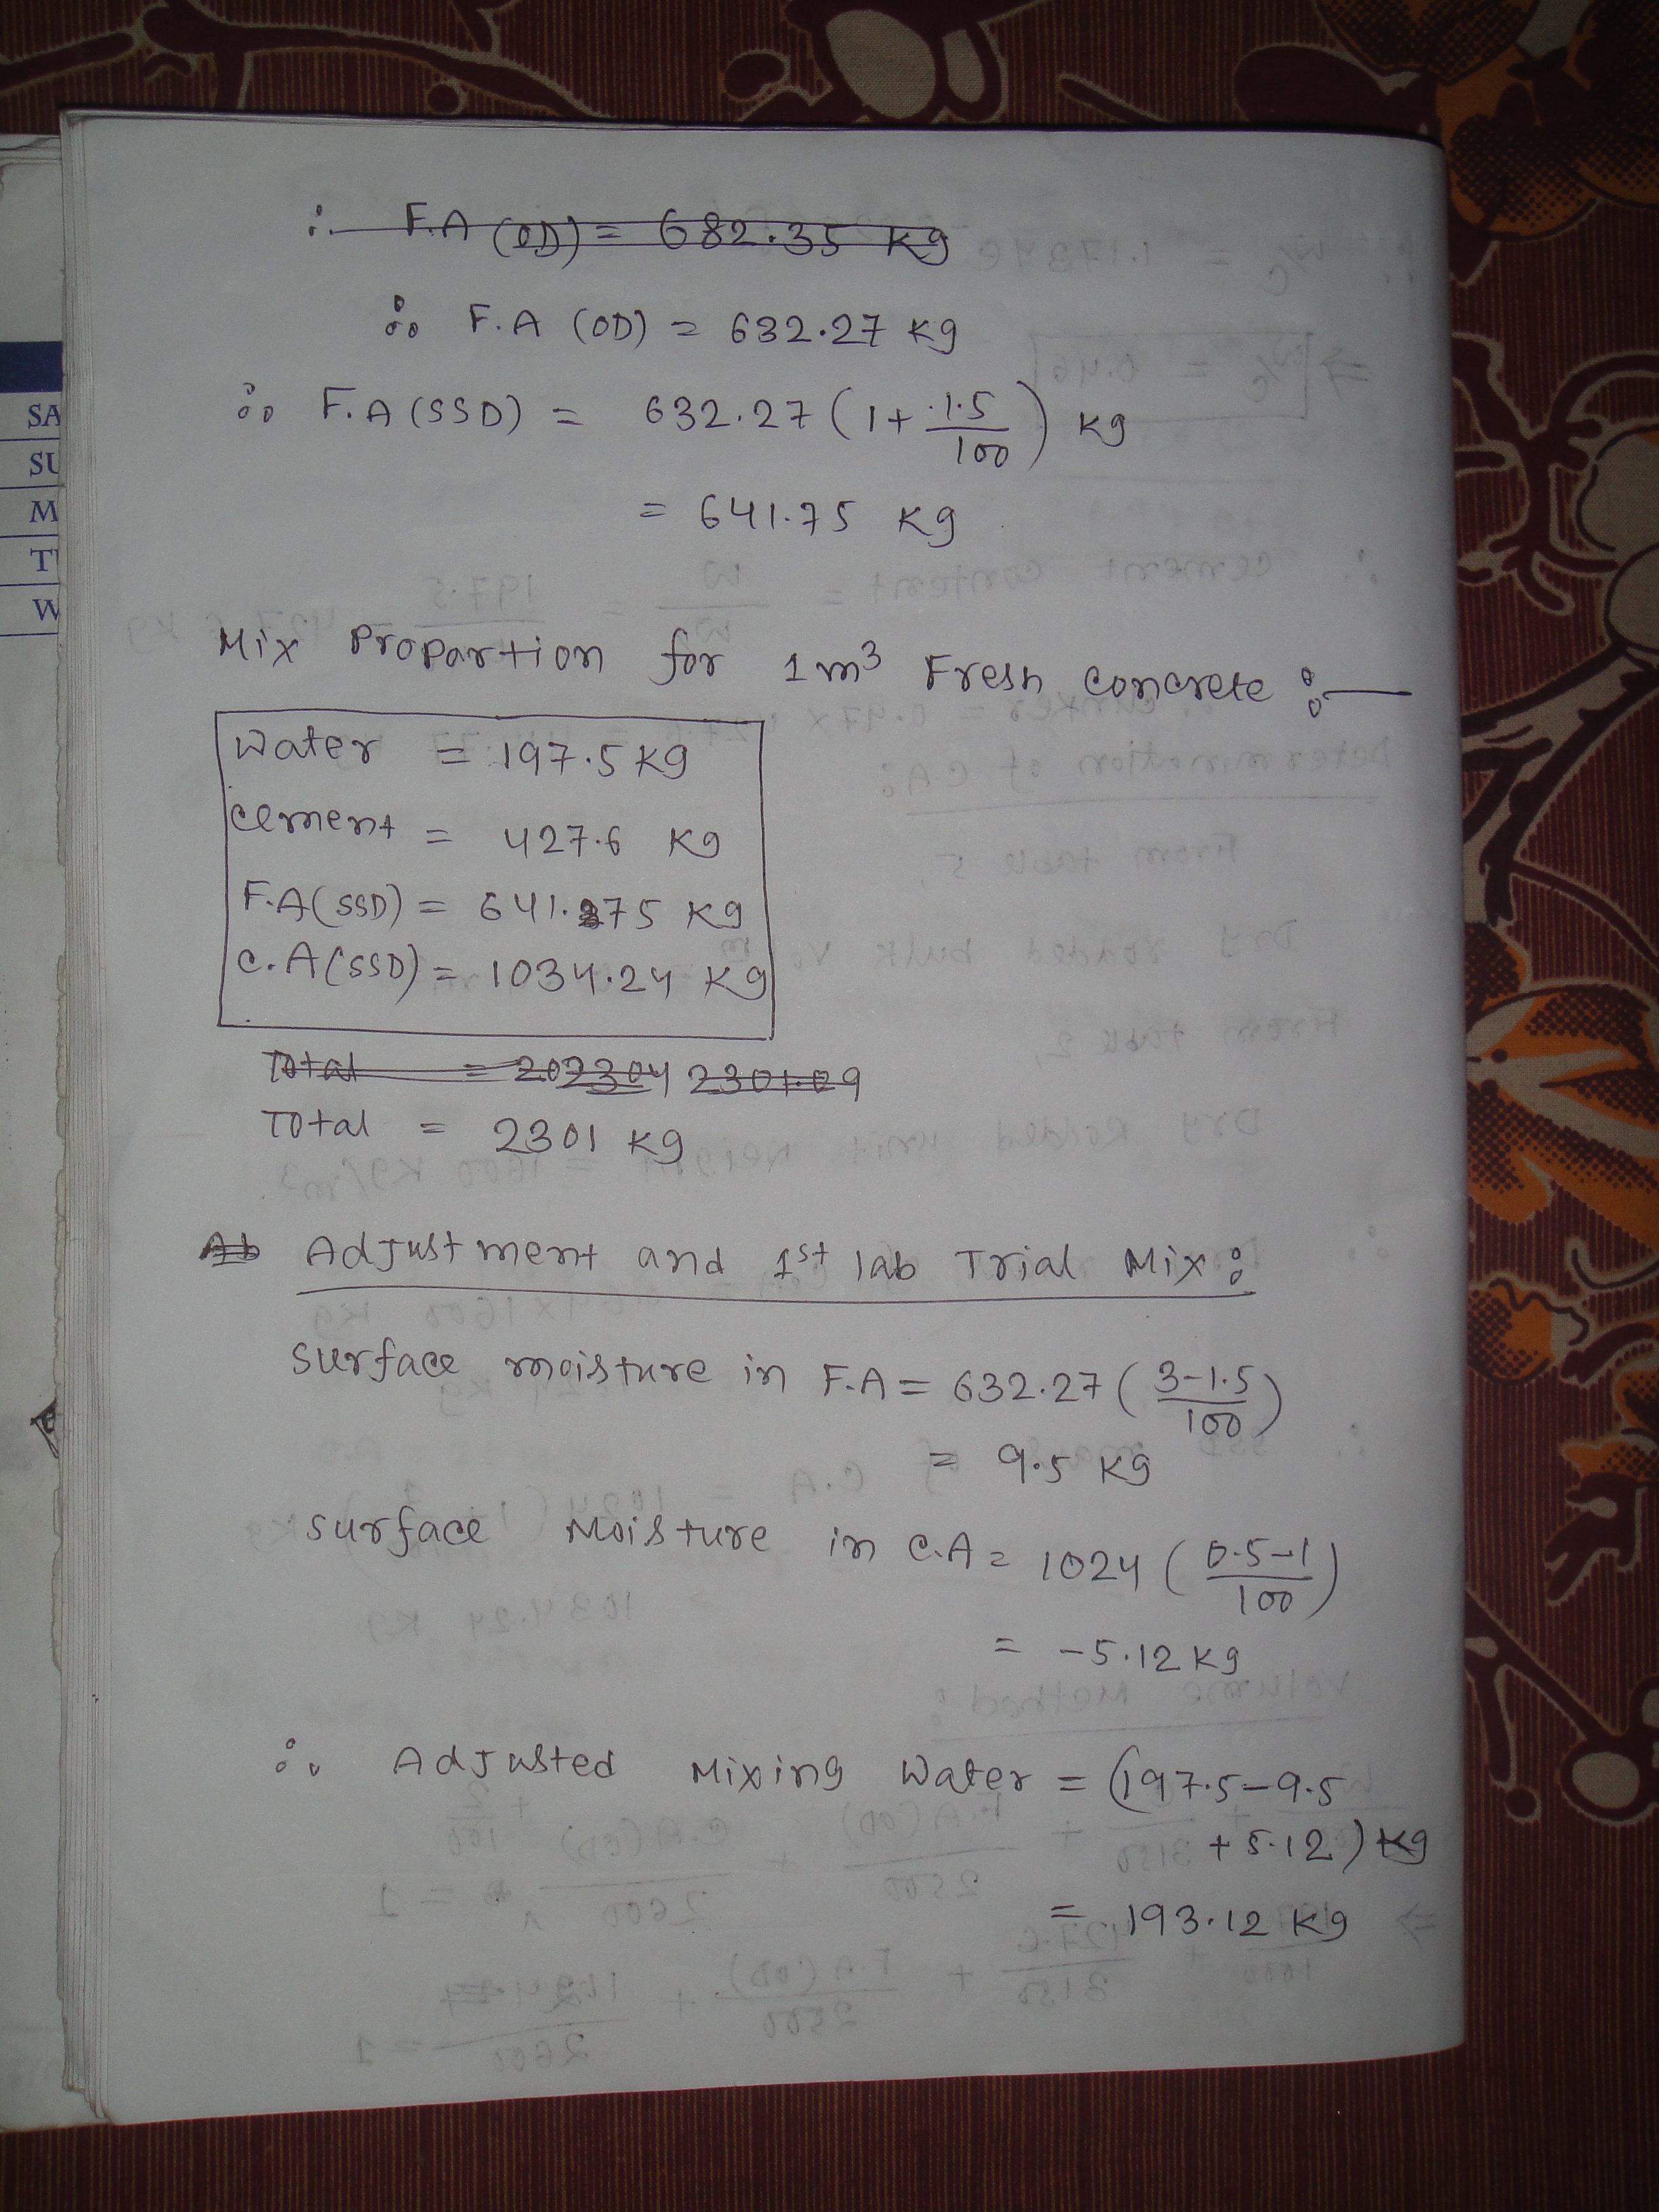 ∴ F.A (OD) = 682.35 kg
∴ F.A (OD) = 632.27 kg
∴ F.A (SSD) = 632.27 (1+ 1.5/100) kg
= 641.75 kg
Mix Propartion for 1m³ Fresh concrete :—
Water = 197.5 kg
cement = 427.6 kg
F.A (SSD) = 641.75 kg
C.A (SSD) = 1034.24 kg
Total = 2301.09
Total = 2301 kg
Adjustment and 1st lab Trial Mix :
Surface moisture in F.A = 632.27 (3-1.5/100)
= 9.5 kg
Surface Moisture in C.A = 1024 (0.5-1/100)
= -5.12 kg
∴ Adjusted Mixing Water = (197.5-9.5
+ 5.12) kg
= 193.12 kg
SA
SU
M
T
W